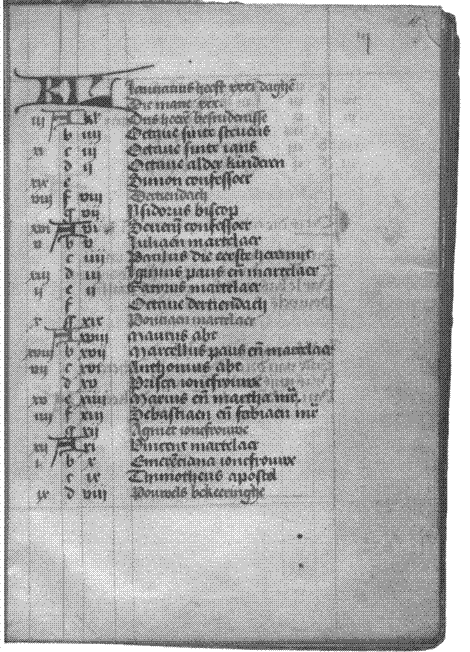 KL Januarius heeft xxxi daghen
Die mane xxx.
iii A kl Ons heren besnidenisse
b iiii Octave sinte stevens
xi c iii Octave sinte ians
d ii Octave alder kinderen
xix e Simon confessoer
viii f viii Dertiendach
g vii Ysidorus biscop
xvi A vi Severijn confessoer
v b v Juliaen martelaer
c iiii Paulus die eerste heremijt
xiii d iii Iginius paus eñ martelaer
ii e ii martelaer
f Octave dertiendach
x g xix Ponciaen martelaer
A xviii Maurus abt
xviii b xvii Marcellus paus eñ martelaer
vii c xvi Anthonius abt
d xv Prisca ioncfrouwe
xv e xiiii Marius eñ martha mr.
iiii f xiii Sebastiaen eñ fabiaen mr
g xii Agniet ioncfrouwe
xii A xi Vincent martelaer
i b x Emerenciana ioncfrouwe
c ix Thimotheus apostel
ix d viii Pouwels bekeeringhe